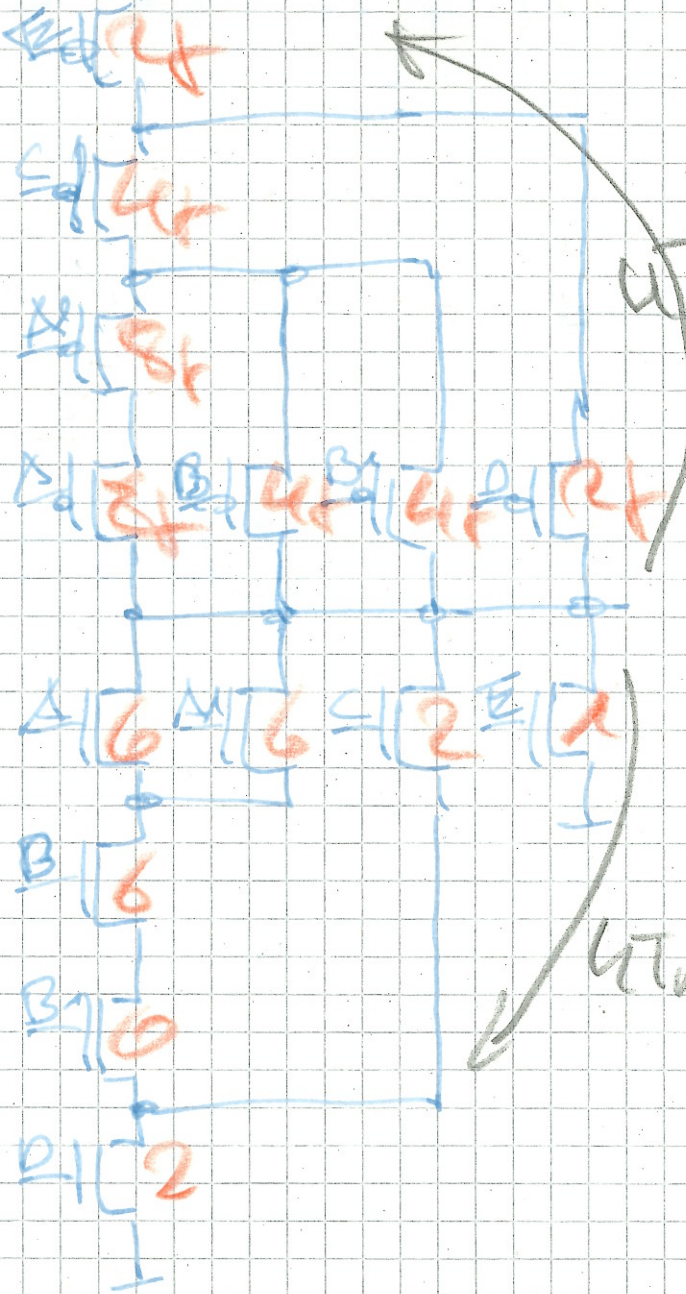 2r
C 4r
A1 8r
A 8r B 4r B1 4r D 2r
A 6 A1 6 C 2 E 1
B 6
B1 6
D 2